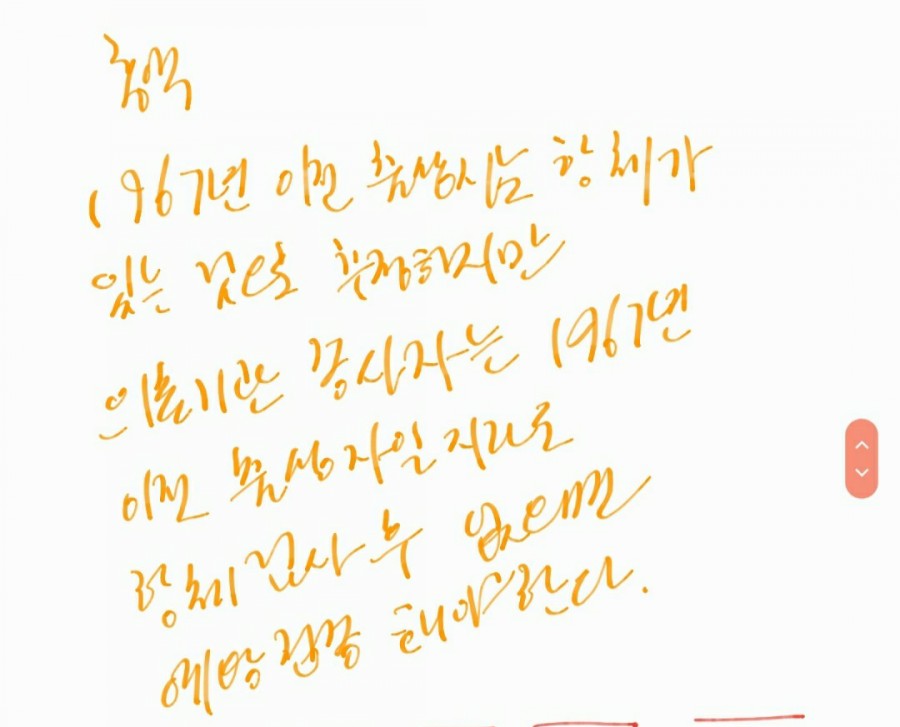 홍역
1967년 이전 출생시는 항체가
있는 것으로 추정하지만
의료기관 종사자는 1967년
이전 출생자일지라도
항체검사 후 없으면
예방접종 해야한다.